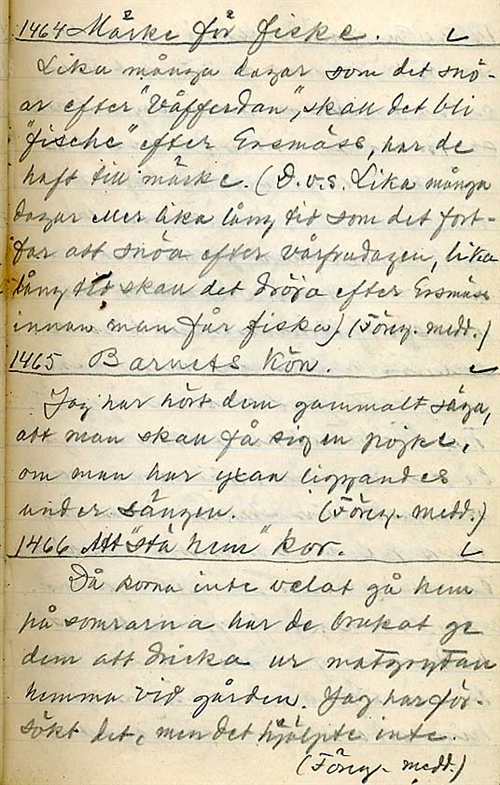 1464 Märke för fiske.
Lika många dagar som det snö-
ar efter "Våfferdan", skall det bli
"fische" efter Ersmäss, har de
haft till märke. (D.v.s. Lika många
dagar eller lika lång tid som det fort-
far att snöa efter vårfrudagen, lika
lång tid skall det dröja efter Ersmäss
innan man får fiska) (Föreg. medd.)
1465 Barnets kön.
Jag har hört dem gammalt säga,
att man skall få sig en pojke,
om man har yxan liggandes
under sängen. (Föreg. medd.)
1466 Att "stå hem" kor.
Då korna inte velat gå hem
på somrarna har de brukat ge
dem att dricka ur matgrytan
hemma vid gården. Jag har för-
sökt det, men det hjälpte inte.
(Föreg. medd.)